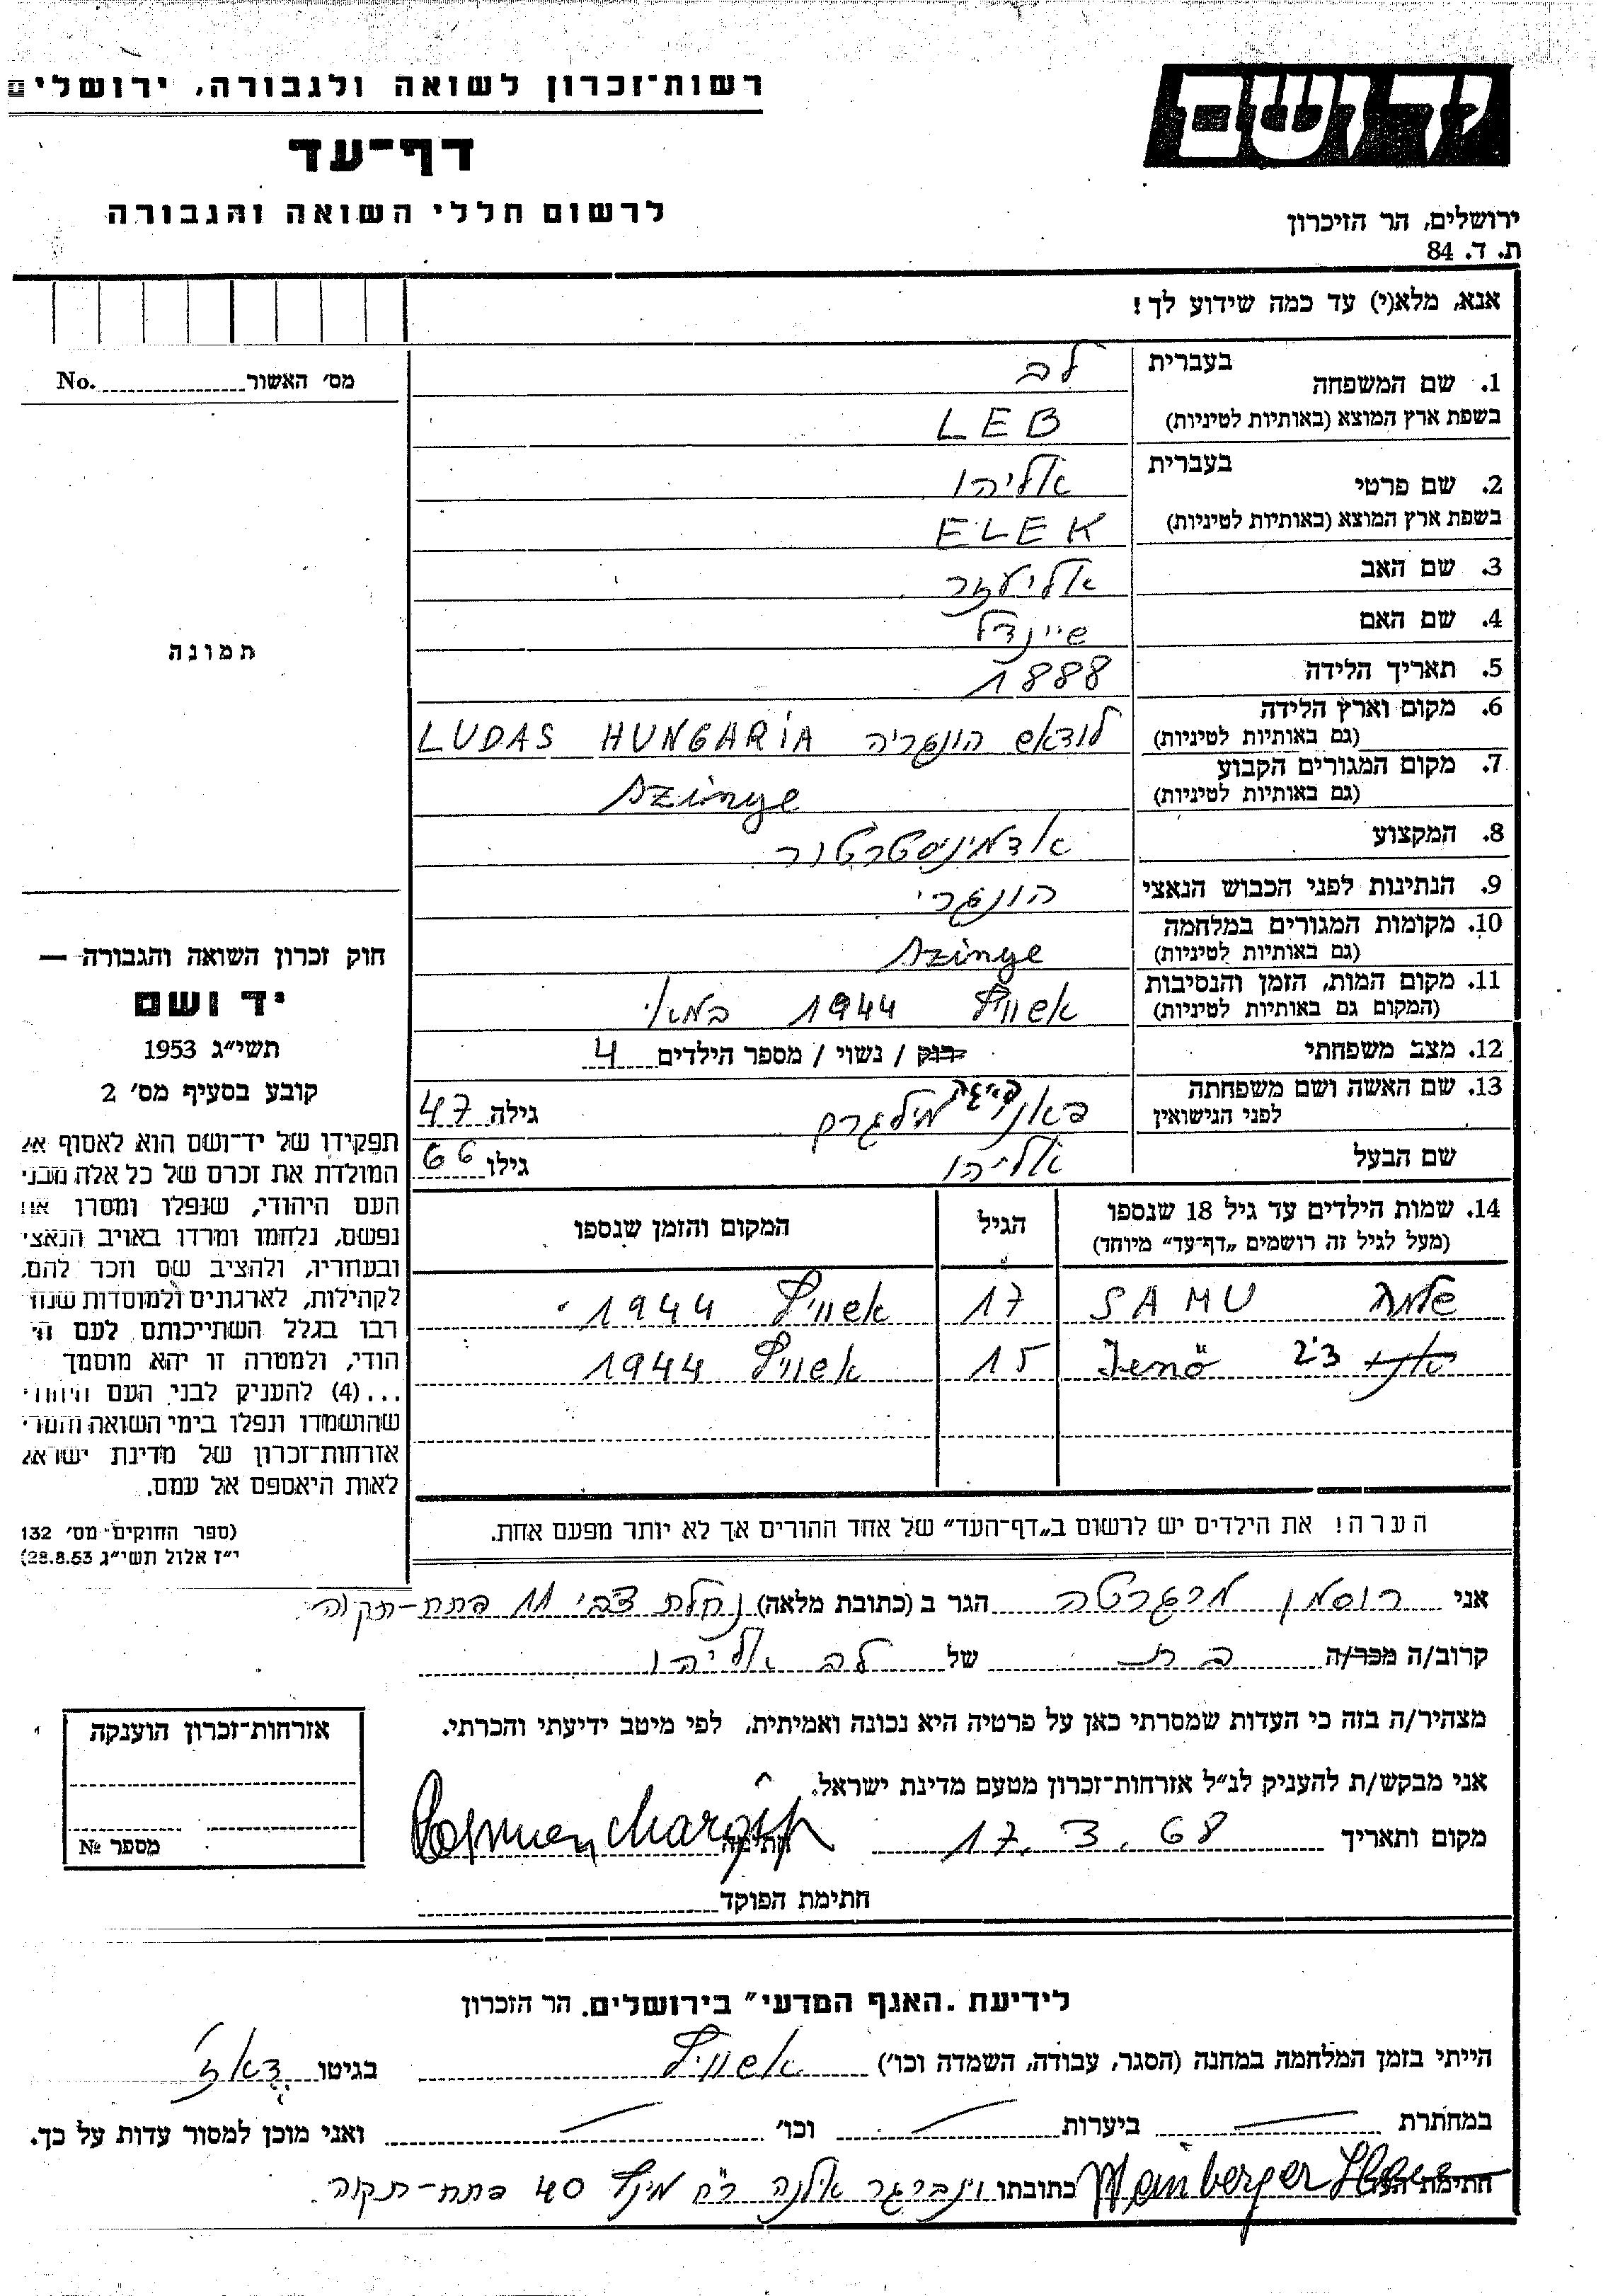 רשות־זכרון לשואה ולגבורה, ירושלים
דף־עד
לרשום חללי השואה והגבורה
ידושם
ירושלים, הר הזיכרון
ת. ד. 84
אנא, מלא(י) עד כמה שידוע לך!
מס׳ האשור No.
תמונה
1. שם המשפחה בעברית לב
בשפת ארץ המוצא (באותיות לטיניות) LEB
2. שם פרטי בעברית אליהו
בשפת ארץ המוצא (באותיות לטיניות) ELEK
3. שם האב אליעזר
4. שם האם שיינדל
5. תאריך הלידה 1888
6. מקום וארץ הלידה (גם באותיות לטיניות) לודאש הונגריה LUDAS HUNGARIA
7. מקום המגורים הקבוע (גם באותיות לטיניות) Szinye
8. המקצוע אדמיניסטרטור
9. הנתינות לפני הכבוש הנאצי הונגרי
10. מקומות המגורים במלחמה (גם באותיות לטיניות) Szinye
11. מקום המות, הזמן והנסיבות (המקום גם באותיות לטיניות) אשוויץ 1944 במאי
12. מצב משפחתי רווק / נשוי / מספר הילדים 4
13. שם האשה ושם משפחתה לפני הנישואין מילגרם גילה 47
שם הבעל אליהו גילו 66
14. שמות הילדים עד גיל 18 שנספו הגיל המקום והזמן שנספו
(מעל לגיל זה רושמים „דף־עד״ מיוחד)
שלמה SAMU 17 אשוויץ 1944
Jenö 15 אשוויץ 1944
הערה! את הילדים יש לרשום ב„דף־העד״ של אחד ההורים אך לא יותר מפעם אחת.
חוק זכרון השואה והגבורה —
יד ושם
תשי״ג 1953
קובע בסעיף מס׳ 2
תפקידו של יד־ושם הוא לאסוף אל
המולדת את זכרם של כל אלה מבני
העם היהודי, שנפלו ומסרו את
נפשם, נלחמו ומרדו באויב הנאצי
ובעוזריו, ולהציב שם וזכר להם,
לקהילות, לארגונים ולמוסדות שנח
רבו בגלל השתייכותם לעם הי
הודי, ולמטרה זו יהא מוסמך
...(4) להעניק לבני העם היהודי
שהושמדו ונפלו בימי השואה והמרי
אזרחות־זכרון של מדינת ישראל
לאות היאספם אל עמם.
(ספר החוקים מס׳ 132
י״ז אלול תשי״ג 28.8.53)
אני רוסמן מרגרטה הגר ב (כתובת מלאה) נחלת צבי 11 פתח-תקוה
קרוב/ה מכר/ה בת של לב אליהו
מצהיר/ה בזה כי העדות שמסרתי כאן על פרטיה היא נכונה ואמיתית, לפי מיטב ידיעתי והכרתי.
אני מבקש/ת להעניק לנ״ל אזרחות־זכרון מטעם מדינת ישראל.
מקום ותאריך 17.3.68 חתימה
חתימת הפוקד
אזרחות־זכרון הוענקה
מספר №
לידיעת „האגף המדעי״ בירושלים, הר הזכרון
הייתי בזמן המלחמה במחנה (הסגר, עבודה, השמדה וכו׳) אשוויץ בגיטו
במחתרת — ביערות — וכו׳ — ואני מוכן למסור עדות על כך.
Weinberger כתובתו וינברגר אילנה 40 פתח-תקוה